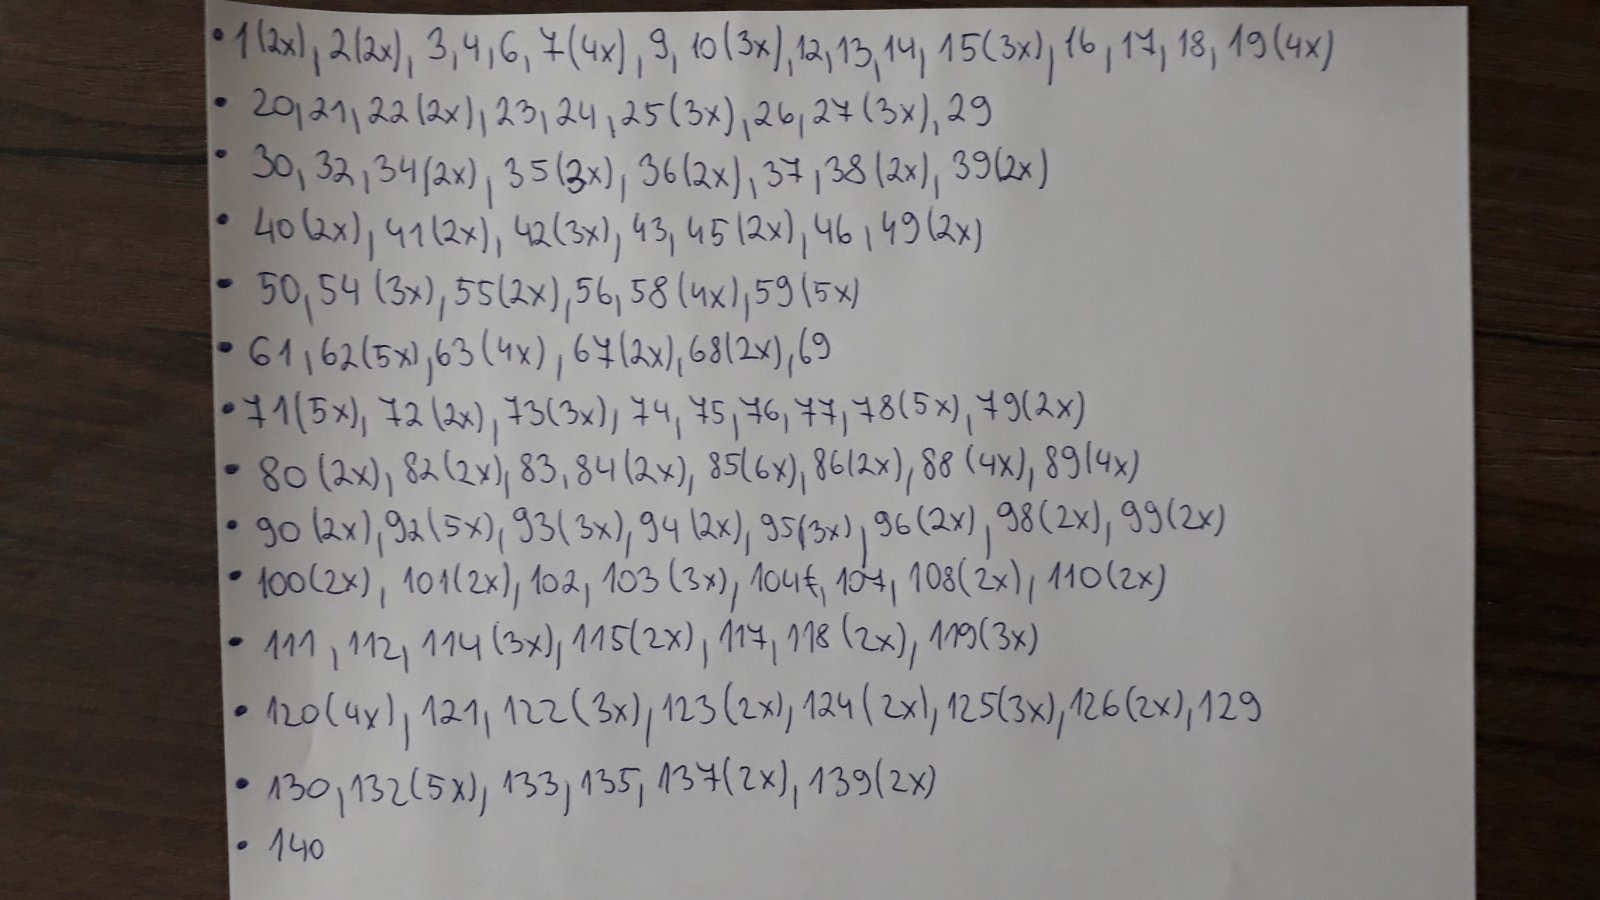 • 1(2x), 2(2x), 3, 4, 6, 7(4x), 9, 10(3x), 12, 13, 14, 15(3x), 16, 17, 18, 19(4x)
• 20, 21, 22(2x), 23, 24, 25(3x), 26, 27(3x), 29
• 30, 32, 34(2x), 35(3x), 36(2x), 37, 38(2x), 39(2x)
• 40(2x), 41(2x), 42(3x), 43, 45(2x), 46, 49(2x)
• 50, 54(3x), 55(2x), 56, 58(4x), 59(5x)
• 61, 62(5x), 63(4x), 67(2x), 68(2x), 69
• 71(5x), 72(2x), 73(3x), 74, 75, 76, 77, 78(5x), 79(2x)
• 80(2x), 82(2x), 83, 84(2x), 85(6x), 86(2x), 88(4x), 89(4x)
• 90(2x), 92(5x), 93(3x), 94(2x), 95(3x), 96(2x), 98(2x), 99(2x)
• 100(2x), 101(2x), 102, 103(3x), 104, 107, 108(2x), 110(2x)
• 111, 112, 114(3x), 115(2x), 117, 118(2x), 119(3x)
• 120(4x), 121, 122(3x), 123(2x), 124(2x), 125(3x), 126(2x), 129
• 130, 132(5x), 133, 135, 137(2x), 139(2x)
• 140